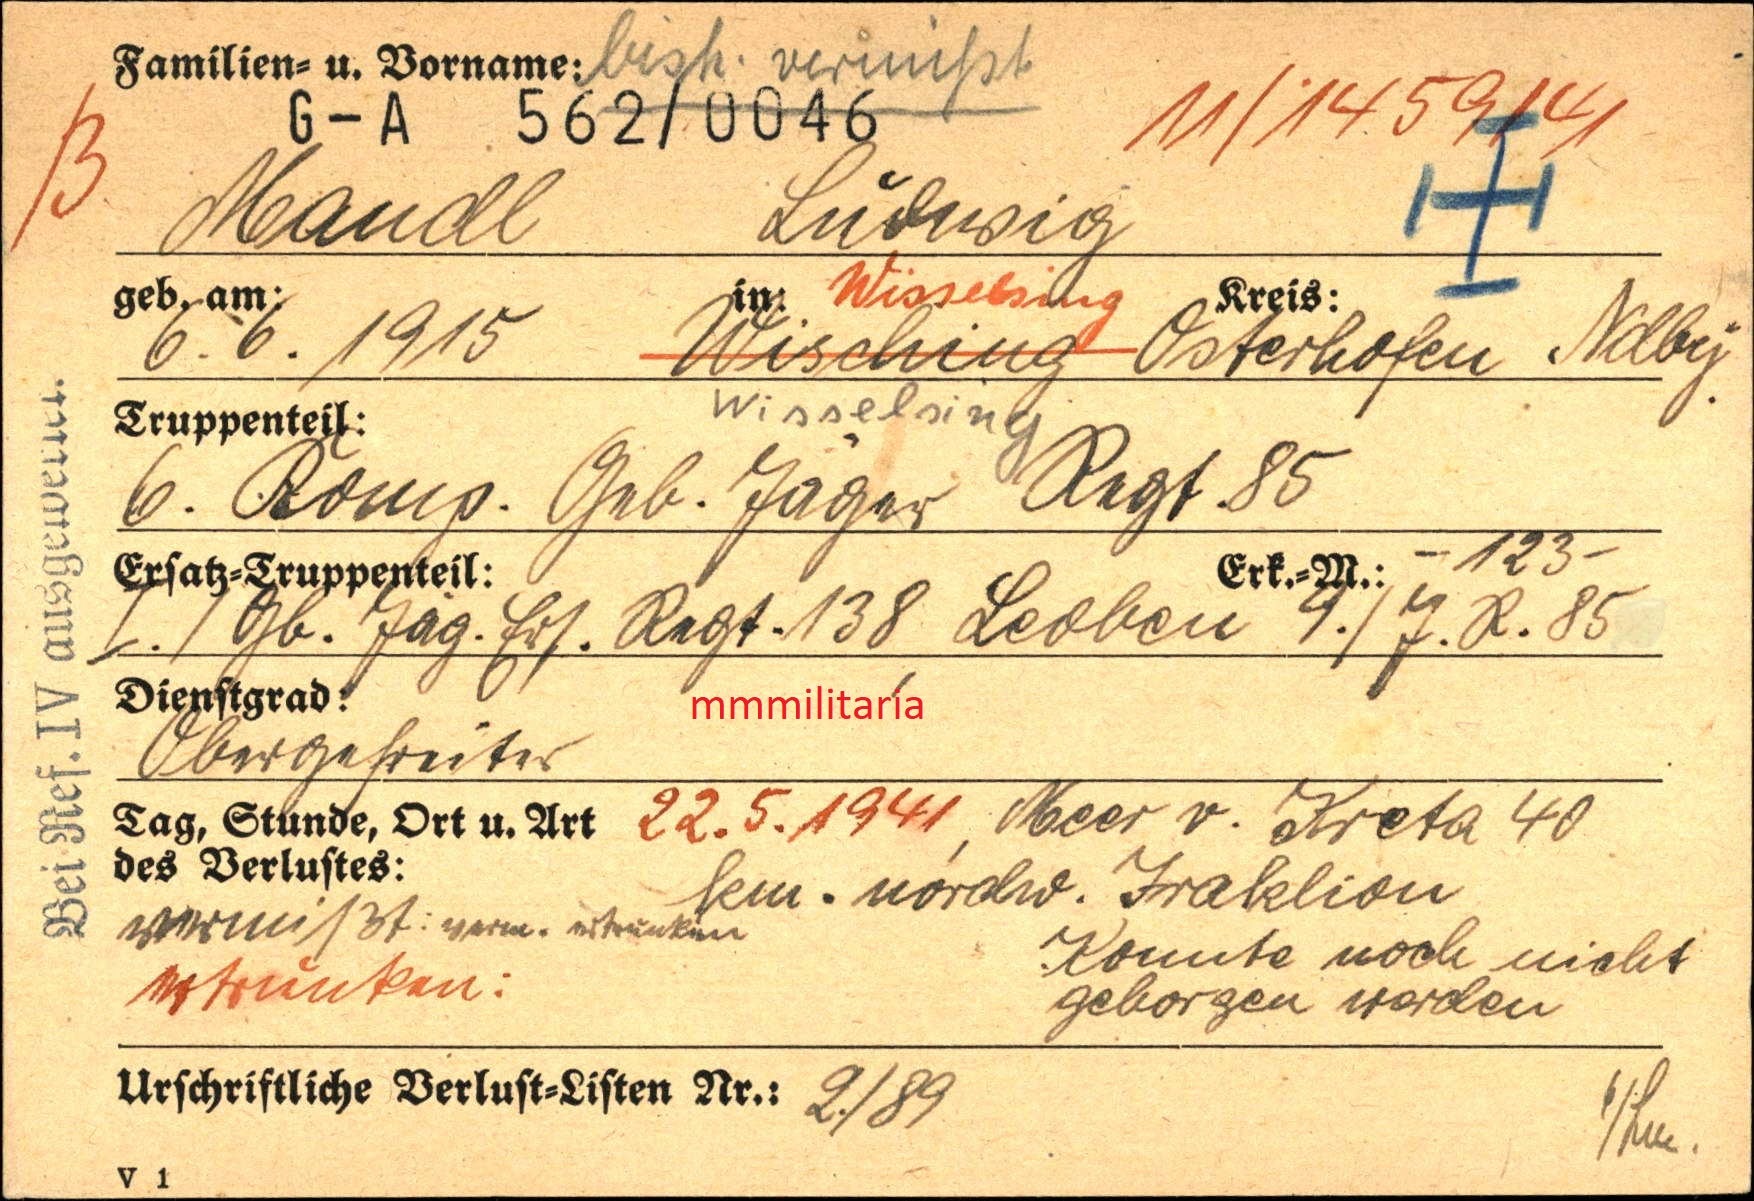 Familien- u. Vorname: bish. vermißt
G-A 562/0046
11/1459/41
B
Mandl Ludwig
geb. am: in: Wisselsing Kreis:
6. 6. 1915 Wisching Osterhofen Ndby.
Wisselsing
Truppenteil:
6. Komp. Geb. Jäger Regt. 85
Ersatz-Truppenteil: Erk.-M.: -123-
I./Gb. Jäg. Ers. Regt. 138 Leoben 9./J.R. 85
Dienstgrad:
mmmilitaria
Obergefreiter
Tag, Stunde, Ort u. Art 22.5.1941, Meer v. Kreta 40
des Verlustes: km. nordw. Iraklion
vermißt: verm. ertrunken
Konnte noch nicht
ertrunken: geborgen werden
Urschriftliche Verlust-Listen Nr.: 2./89
V 1
Bei Ref. IV ausgewertet.